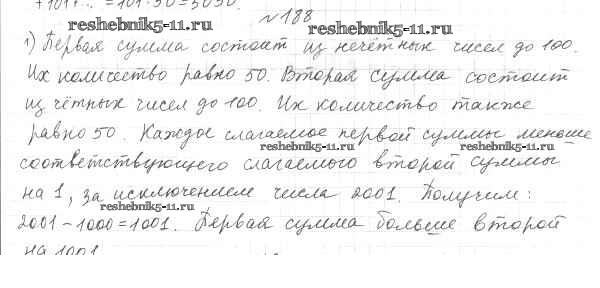 +101+... =101·50=5050.
№188
reshebnik5-11.ru
1) Первая сумма состоит из нечётных чисел до 100.
Их количество равно 50. Вторая сумма состоит
из чётных чисел до 100. Их количество также
равно 50. Каждое слагаемое первой суммы меньше
reshebnik5-11.ru reshebnik5-11.ru
соответствующего слагаемого второй суммы
на 1, за исключением числа 2001. Получим:
reshebnik5-11.ru
2001-1000=1001. Первая сумма больше второй
на 1001